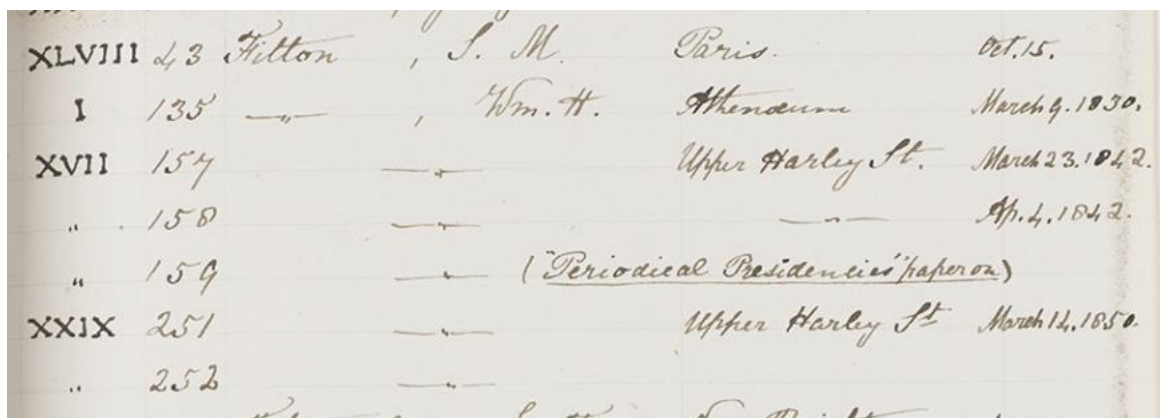 XLVIII 43 Fitton , S. M. Paris. Oct. 15.
I 135 —〃— , Wm. H. Athenæum March 9. 1830.
XVII 157 —〃— Upper Harley St. March 23. 1842.
〃 158 —〃— —〃— Ap. 4. 1842.
〃 159 —〃— ("Periodical Presidencies" paper on)
XXIX 251 —〃— Upper Harley St March 14. 1850.
〃 252 —〃—